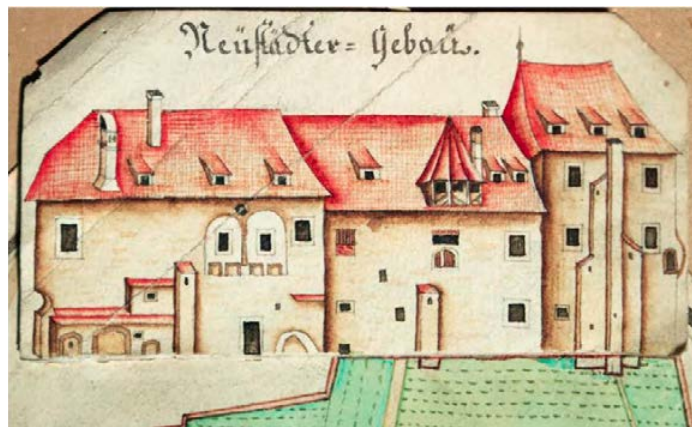 Neüstädter=Gebaü.